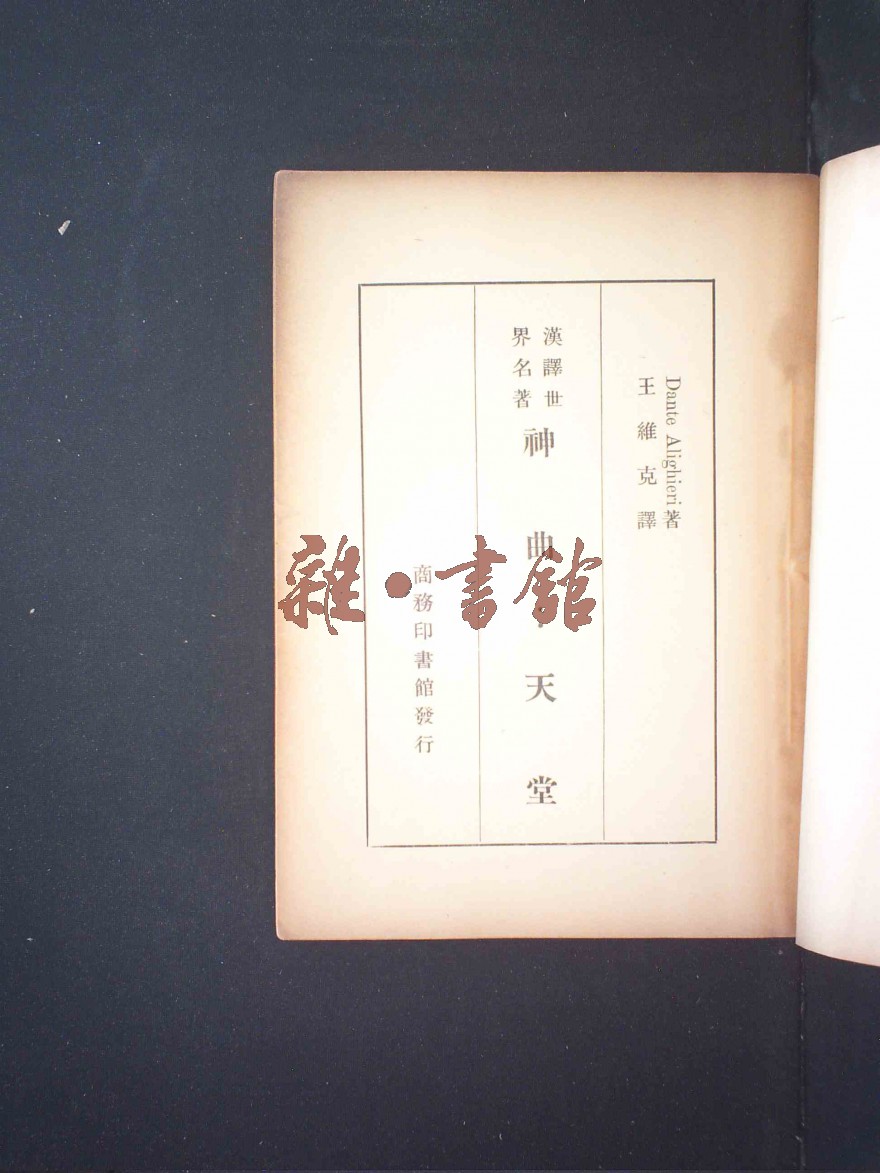 Dante Alighieri著
王維克譯
漢譯世
界名著
神曲·天堂
商務印書館發行
雜·書館